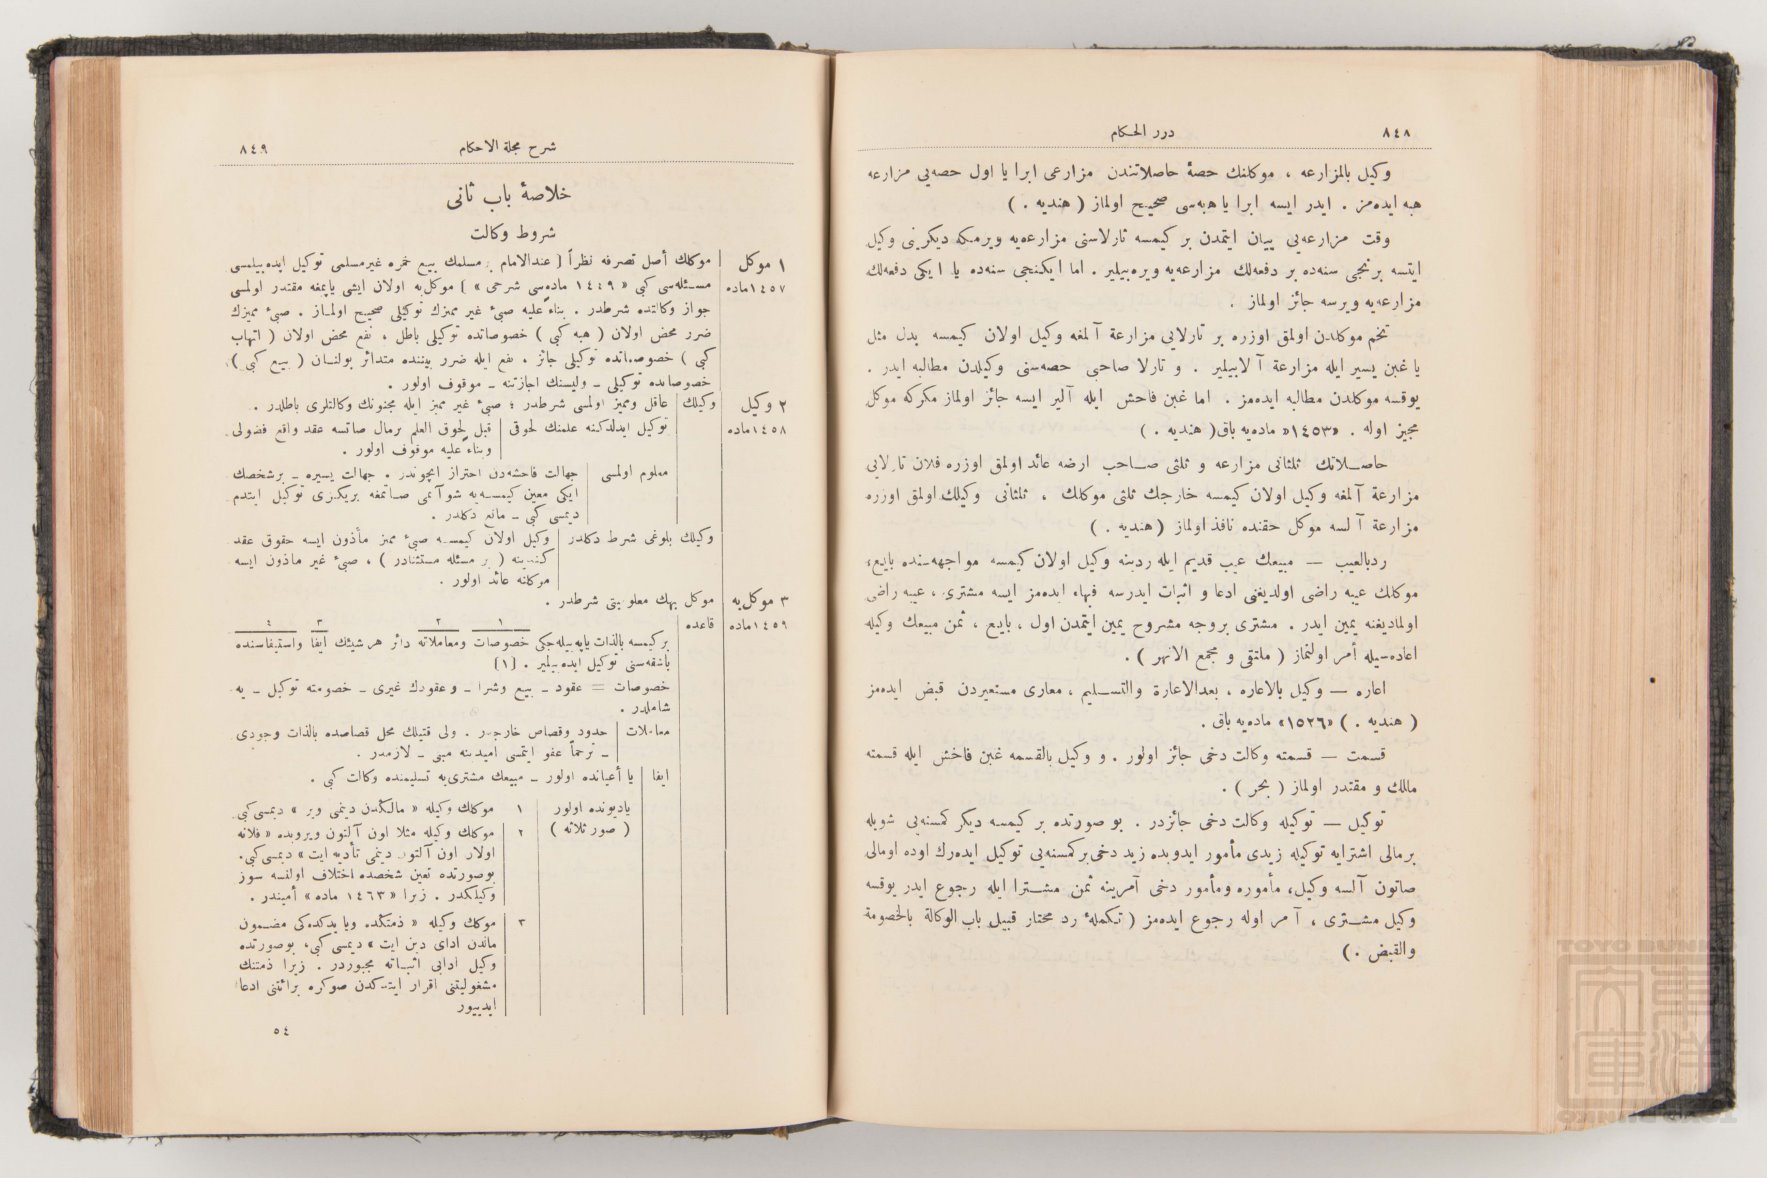 ٨٤٨
درر الحكام
وكيل بالمزارعه ، موكلنك حصهٔ حاصلاتندن مزارعى ابرا يا اول حصه‌يى مزارعه
هبه ايده‌مز . ايدر ايسه ابرا يا هبه‌سى صحيح اولماز ( هنديه . )
وقت مزارعه‌يى بيان ايتمدن بر كيمسه تارلاسنى مزارعه‌يه ويرمكه ديكرينى وكيل
ايتسه برنجى سنه‌ده بر دفعه‌لك مزارعه‌يه ويره‌بيلير . اما ايكنجى سنه‌ده يا ايكى دفعه‌لك
مزارعه‌يه ويرسه جائز اولماز .
تخم موكلدن اولمق اوزره بر تارلايى مزارعة آلمغه وكيل اولان كيمسه بدل مثل
يا غبن يسير ايله مزارعة آلابيلير . و تارلا صاحبى حصه‌سنى وكيلدن مطالبه ايدر .
يوقسه موكلدن مطالبه ايده‌مز . اما غبن فاحش ايله آلير ايسه جائز اولماز مكركه موكل
مجيز اوله . «١٤٥٣» ماده‌يه باق ( هنديه . )
حاصلاتك ثلثانى مزارعه و ثلثى صاحب ارضه عائد اولمق اوزره فلان تارلايى
مزارعة آلمغه وكيل اولان كيمسه خارجك ثلثى موكلك ، ثلثانى وكيلك اولمق اوزره
مزارعة آلسه موكل حقنده نافذ اولماز ( هنديه . )
ردبالعيب — مبيعك عيب قديم ايله ردينه وكيل اولان كيمسه مواجهه‌سنده بايع؛
موكلك عيبه راضى اولديغنى ادعا و اثبات ايدرسه فبها، ايده‌مز ايسه مشترى ، عيبه راضى
اولماديغنه يمين ايدر . مشترى بروجه مشروح يمين ايتمدن اول ، بايع ، ثمن مبيعك وكيله
اعاده‌سيله أمر اولنماز ( ملتقى و مجمع الانهر ) .
اعاره — وكيل بالاعاره ، بعدالاعارة والتسليم ، معارى مستعيردن قبض ايده‌مز
( هنديه . ) «١٥٢٦» ماده‌يه باق .
قسمت — قسمته وكالت دخى جائز اولور . و وكيل بالقسمه غبن فاحش ايله قسمته
مالك و مقتدر اولماز ( بحر ) .
توكيل — توكيله وكالت دخى جائزدر . بو صورتده بر كيمسه ديكر كمسنه‌يى شويله
برمالى اشترايه توكيله زيدى مأمور ايدوبده زيد دخى بركمسنه‌يى توكيل ايده‌رك اوده اومالى
صاتون آلسه وكيل، مأموره ومأمور دخى آمرينه ثمن مشترا ايله رجوع ايدر يوقسه
وكيل مشترى ، آمر اوله رجوع ايده‌مز ( تكملهٔ رد محتار قبيل باب الوكالة بالخصومة
والقبض . )
شرح مجلة الاحكام
٨٤٩
خلاصهٔ باب ثانى
شروط وكالت
١ موكل
١٤٥٧ماده
موكلك أصل تصرفه نظراً [ عندالامام بر مسلمك بيع خمره غيرمسلمى توكيل ايده‌بيلمسى
مسئله‌سى كبى « ١٤٤٩ ماده‌سى شرحى » ] موكل‌به اولان ايشى ياپمغه مقتدر اولمسى
جواز وكالتده شرطدر . بناءً عليه صبئ غير مميزك توكيلى صحيح اولماز . صبئ مميزك
ضرر محض اولان ( هبه كبى ) خصوصاتده توكيلى باطل ، نفع محض اولان ( اتهاب
كبى ) خصوصاتده توكيلى جائز ، نفع ايله ضرر بيننده متدائر بولنان ( بيع كبى )
خصوصاتده توكيلى ـ وليسنك اجازتنه ـ موقوف اولور .
٢ وكيل
١٤٥٨ماده
وكيلك
عاقل ومميز اولمسى شرطدر ؛ صبئ غير مميز ايله مجنونك وكالتلرى باطلدر .
توكيل ايدلدكينه علمنك لحوقى
قبل لحوق العلم برمال صاتسه عقد واقع فضولى
وبناءً عليه موقوف اولور .
معلوم اولمسى
جهالت فاحشه‌دن احتراز ايچوندر . جهالت يسيره ـ برشخصك
ايكى معين كيمسه‌يه شوآتمى صاتمغه بريكزى توكيل ايتدم
ديمسى كبى ـ مانع دكلدر .
وكيلك بلوغى شرط دكلدر
وكيل اولان كيمسه صبئ مميز مأذون ايسه حقوق عقد
كندينه ( بر مسئله مستثنادر ) ، صبئ غير مأذون ايسه
موكلنه عائد اولور .
٣ موكل به
١٤٥٩ماده
موكل بهك معلوميتى شرطدر .
قاعده
١ ٢ ٣ ٤
بر كيمسه بالذات ياپه‌بيله‌جكى خصوصات ومعاملاته دائر هرشيئك ايفا واستيفاسنده
باشقه‌سنى توكيل ايده‌بيلير . [١]
خصوصات = عقود ـ بيع وشرا ـ وعقودك غيرى ـ خصومته توكيل ـ يه
شاملدر .
معاملات
حدود وقصاص خارجدر . ولى قتيلك محل قصاصده بالذات وجودى
ـ ترحماً عفو ايتمسى اميدينه مبنى ـ لازمدر .
ايفا
يا أعيانده اولور ـ مبيعك مشترى‌يه تسليمنده وكالت كبى .
ياديونده اولور
( صور ثلاثه )
١
موكلك وكيله « مالكدن دينمى وير » ديمسى كبى
٢
موكلك وكيله مثلا اون آلتون ويروبده « فلانه
اولان اون آلتون دينمى تأديه ايت » ديمسى كبى .
بوصورتده تعيين شخصده اختلاف اولنسه سوز
وكيلكدر . زيرا « ١٤٦٣ ماده » أميندر .
٣
موكلك وكيله « ذمتكده ويا يدكده‌كى مضمون
مالدن اداى دين ايت » ديمسى كبى، بوصورتده
وكيل ادايى اثباته مجبوردر . زيرا ذمتنك
مشغوليتنى اقرار ايتدكدن صوكره برائتنى ادعا
ايدييور
٥٤
TOYO BUNKO